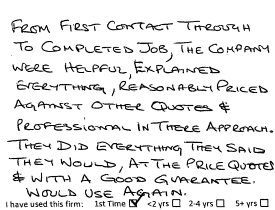 FROM FIRST CONTACT THROUGH
TO COMPLETED JOB, THE COMPANY
WERE HELPFUL, EXPLAINED
EVERYTHING, REASONABLY PRICED
AGAINST OTHER QUOTES &
PROFESSIONAL IN THERE APPROACH.
THEY DID EVERYTHING THEY SAID
THEY WOULD, AT THE PRICE QUOTED
& WITH A GOOD GUARANTEE.
WOULD USE AGAIN.
I have used this firm: 1st Time ☑ <2 yrs ☐ 2-4 yrs ☐ 5+ yrs ☐